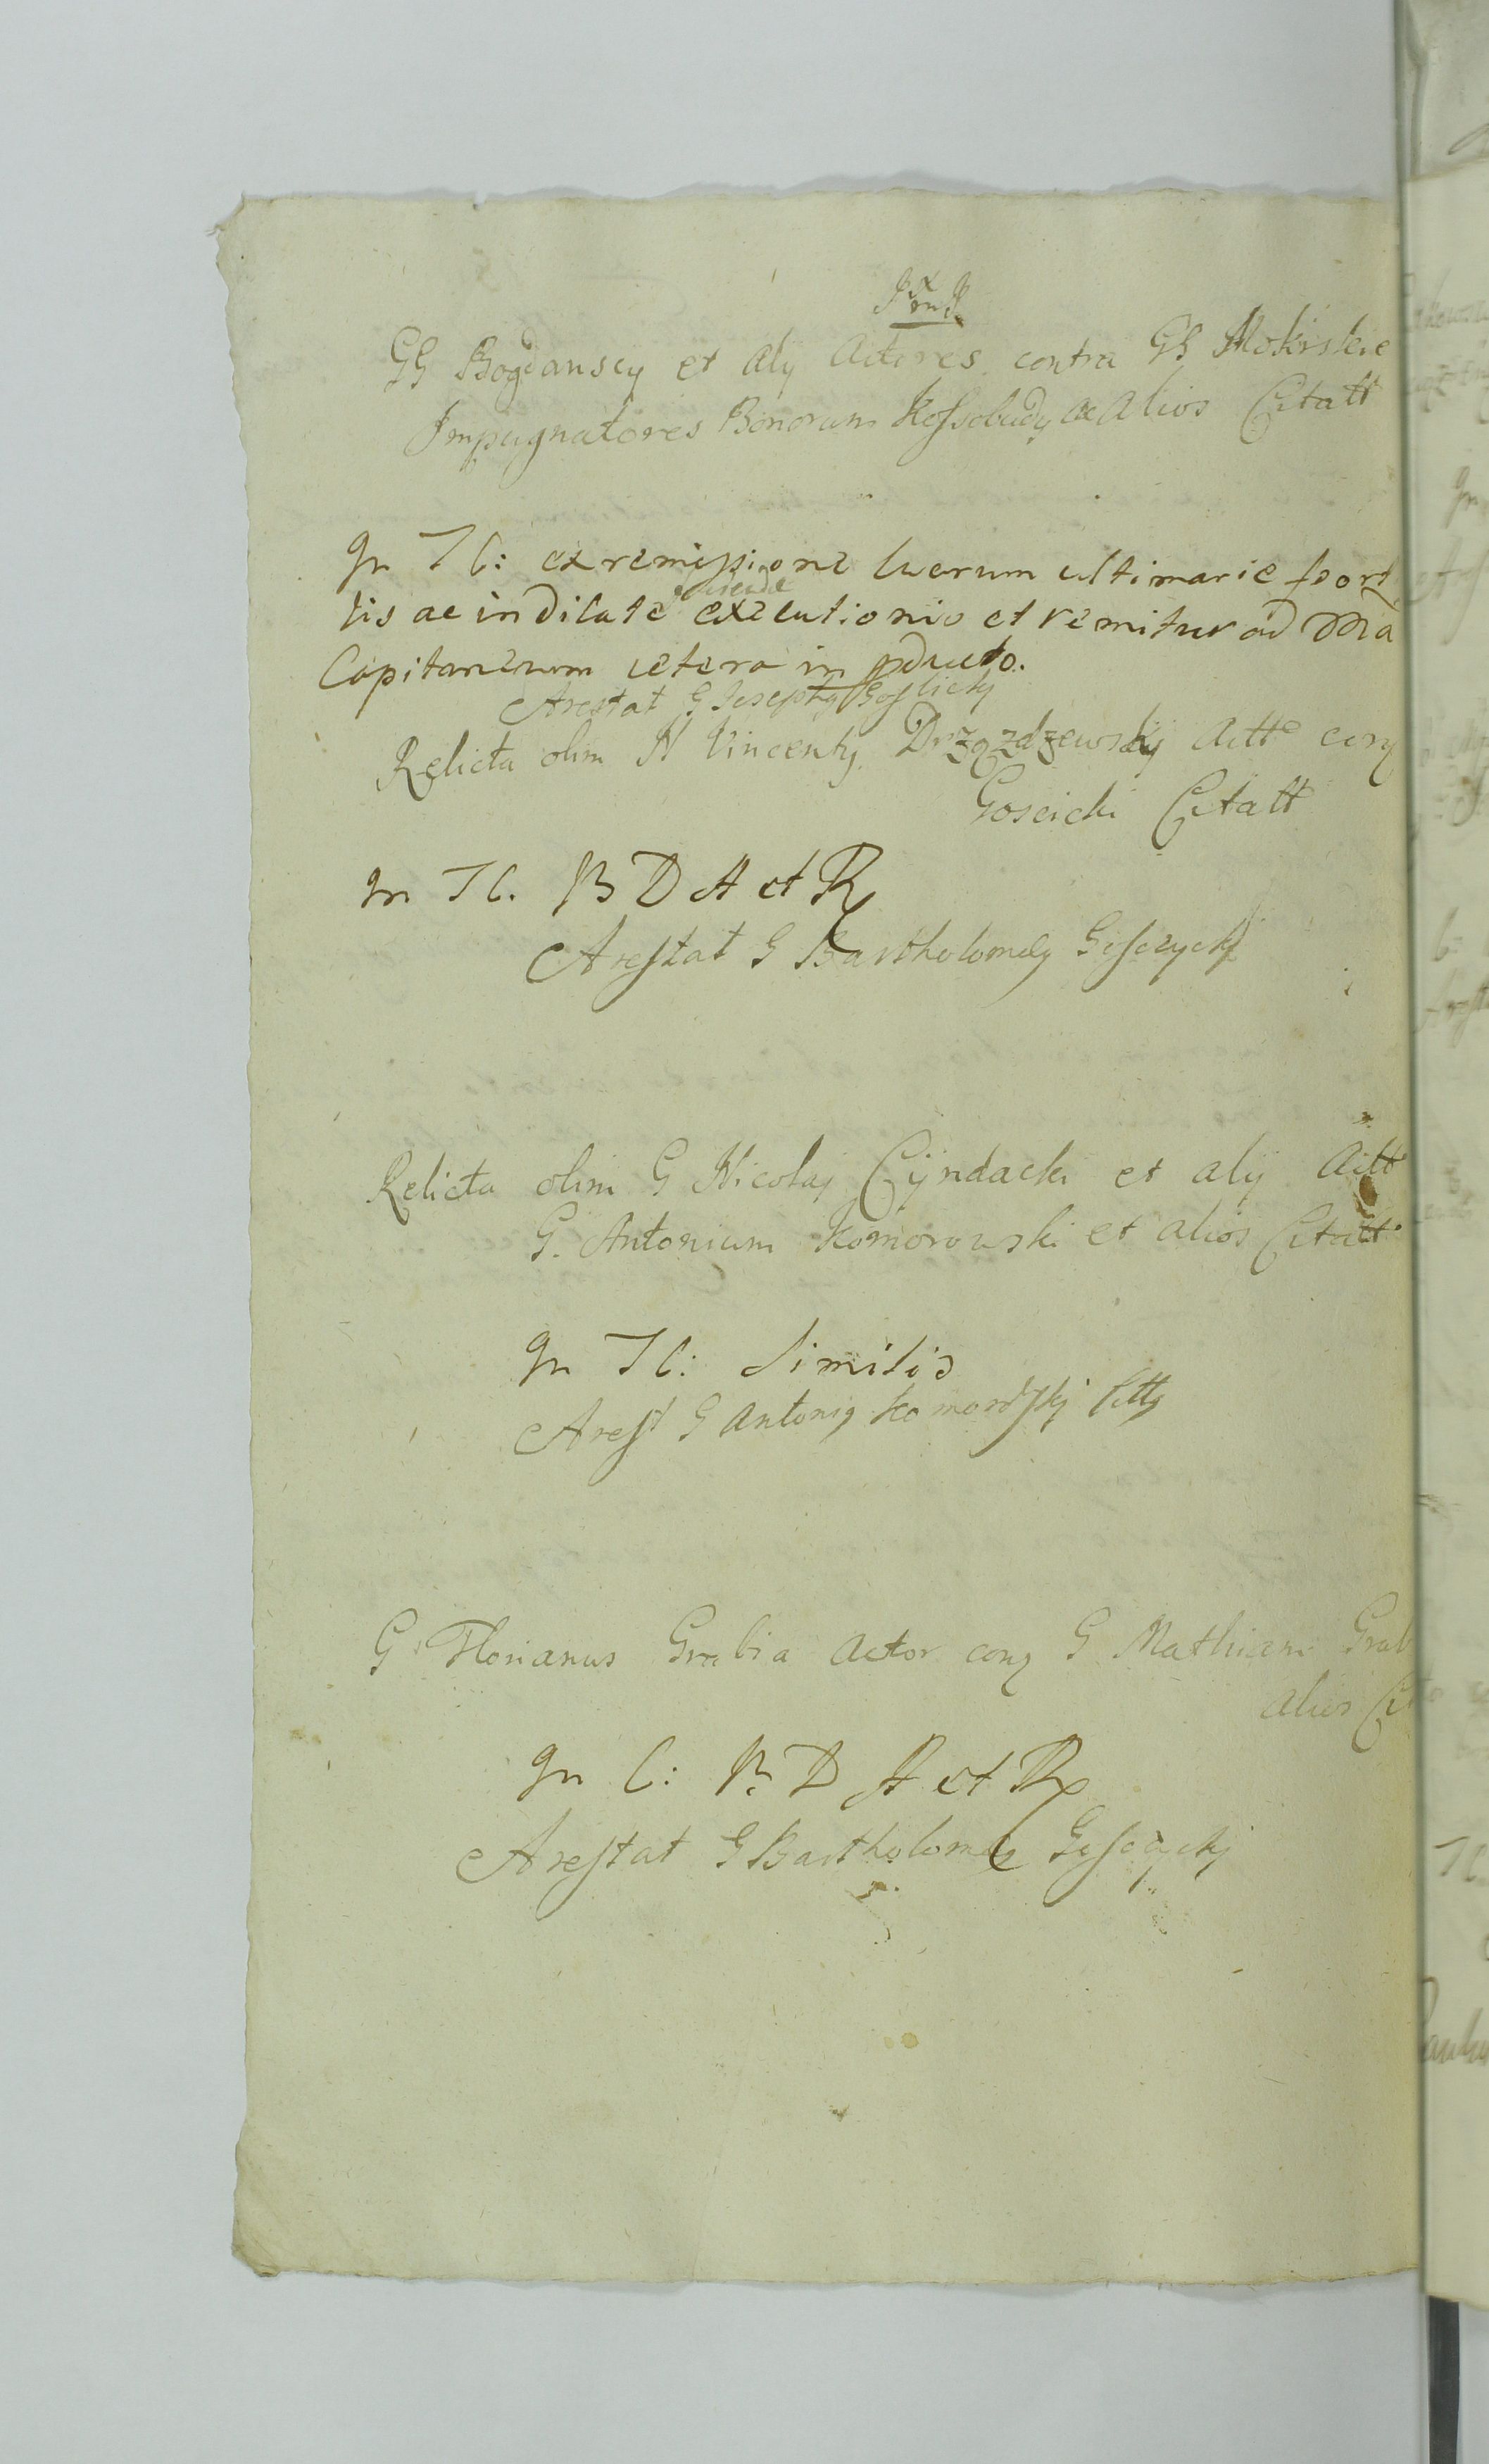 GG Bogdanscy et alij Actores contra GG Mokrskie
Impugnatores Bonorum Kossobudy ac alios Citatt
In TC: ex remissione lucrum ultimarie
tis ac indilate executionis et remitur ad
Capitaneum cetera in
Arestat G Josephg Goslickj
Relicta olim N Vincentij Drzązdzewskij Actt con
Goscicki Citatt
In TC. B D A et R
Arestat G Bartholomeg
Relicta olim G Nicolaj Cyndacki et alij Actt
G. Antonium Komorowski et alios Citatt
In TC: Similis
Arest G Antonig Komorowskj Citt
G Florianus Grabia Actor con G Mathiam Grab
alios Cit
In C: B D A et R
Arestat G Bartholome